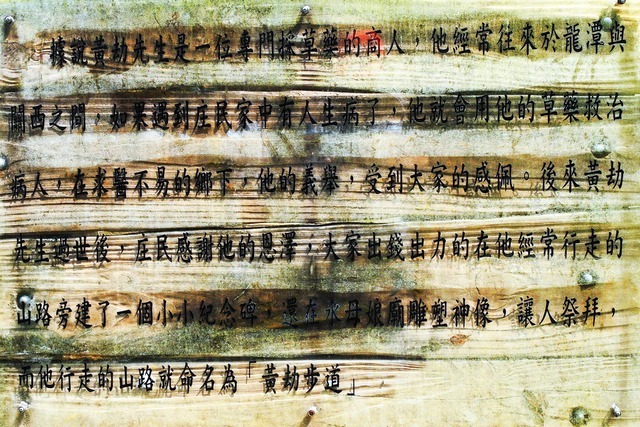 據說黃劫先生是一位專門採草藥的商人，他經常往來於龍潭與
關西之間，如果遇到庄民家中有人生病了，他就會用他的草藥救治
病人，在求醫不易的鄉下，他的義舉，受到大家的感佩。後來黃劫
先生逝世後，庄民感謝他的恩澤，大家出錢出力的在他經常行走的
山路旁建了一個小小紀念碑，還在水母娘廟雕塑神像，讓人祭拜，
而他行走的山路就命名為「黃劫步道」